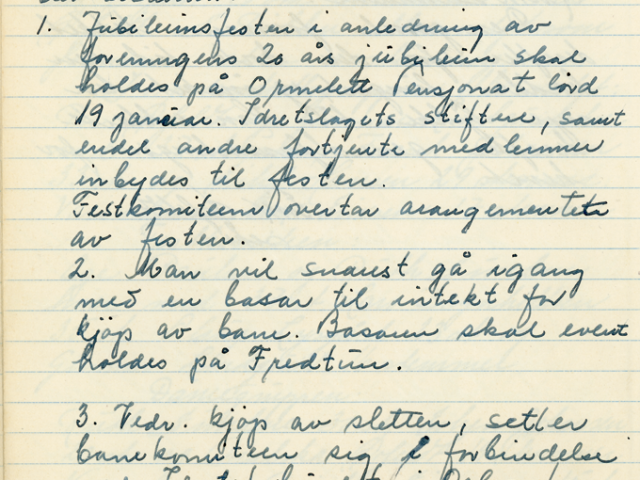 1. Jubileumsfesten i anledning av
foreningens 20 års jubileum skal
holdes på Ormelett Pensjonat lörd
19 januar. Idretslagets stiftere, samt
endel andre fortjente medlemmer
inbydes til festen.
Festkomiteen overtar arangementet
av festen.
2. Man vil snarest gå igang
med en basar til intekt for
kjöp av bane. Basaren skal event
holdes på Fredtun.
3. Vedr. kjöp av sletten, setter
banekomiteen sig i forbindelse